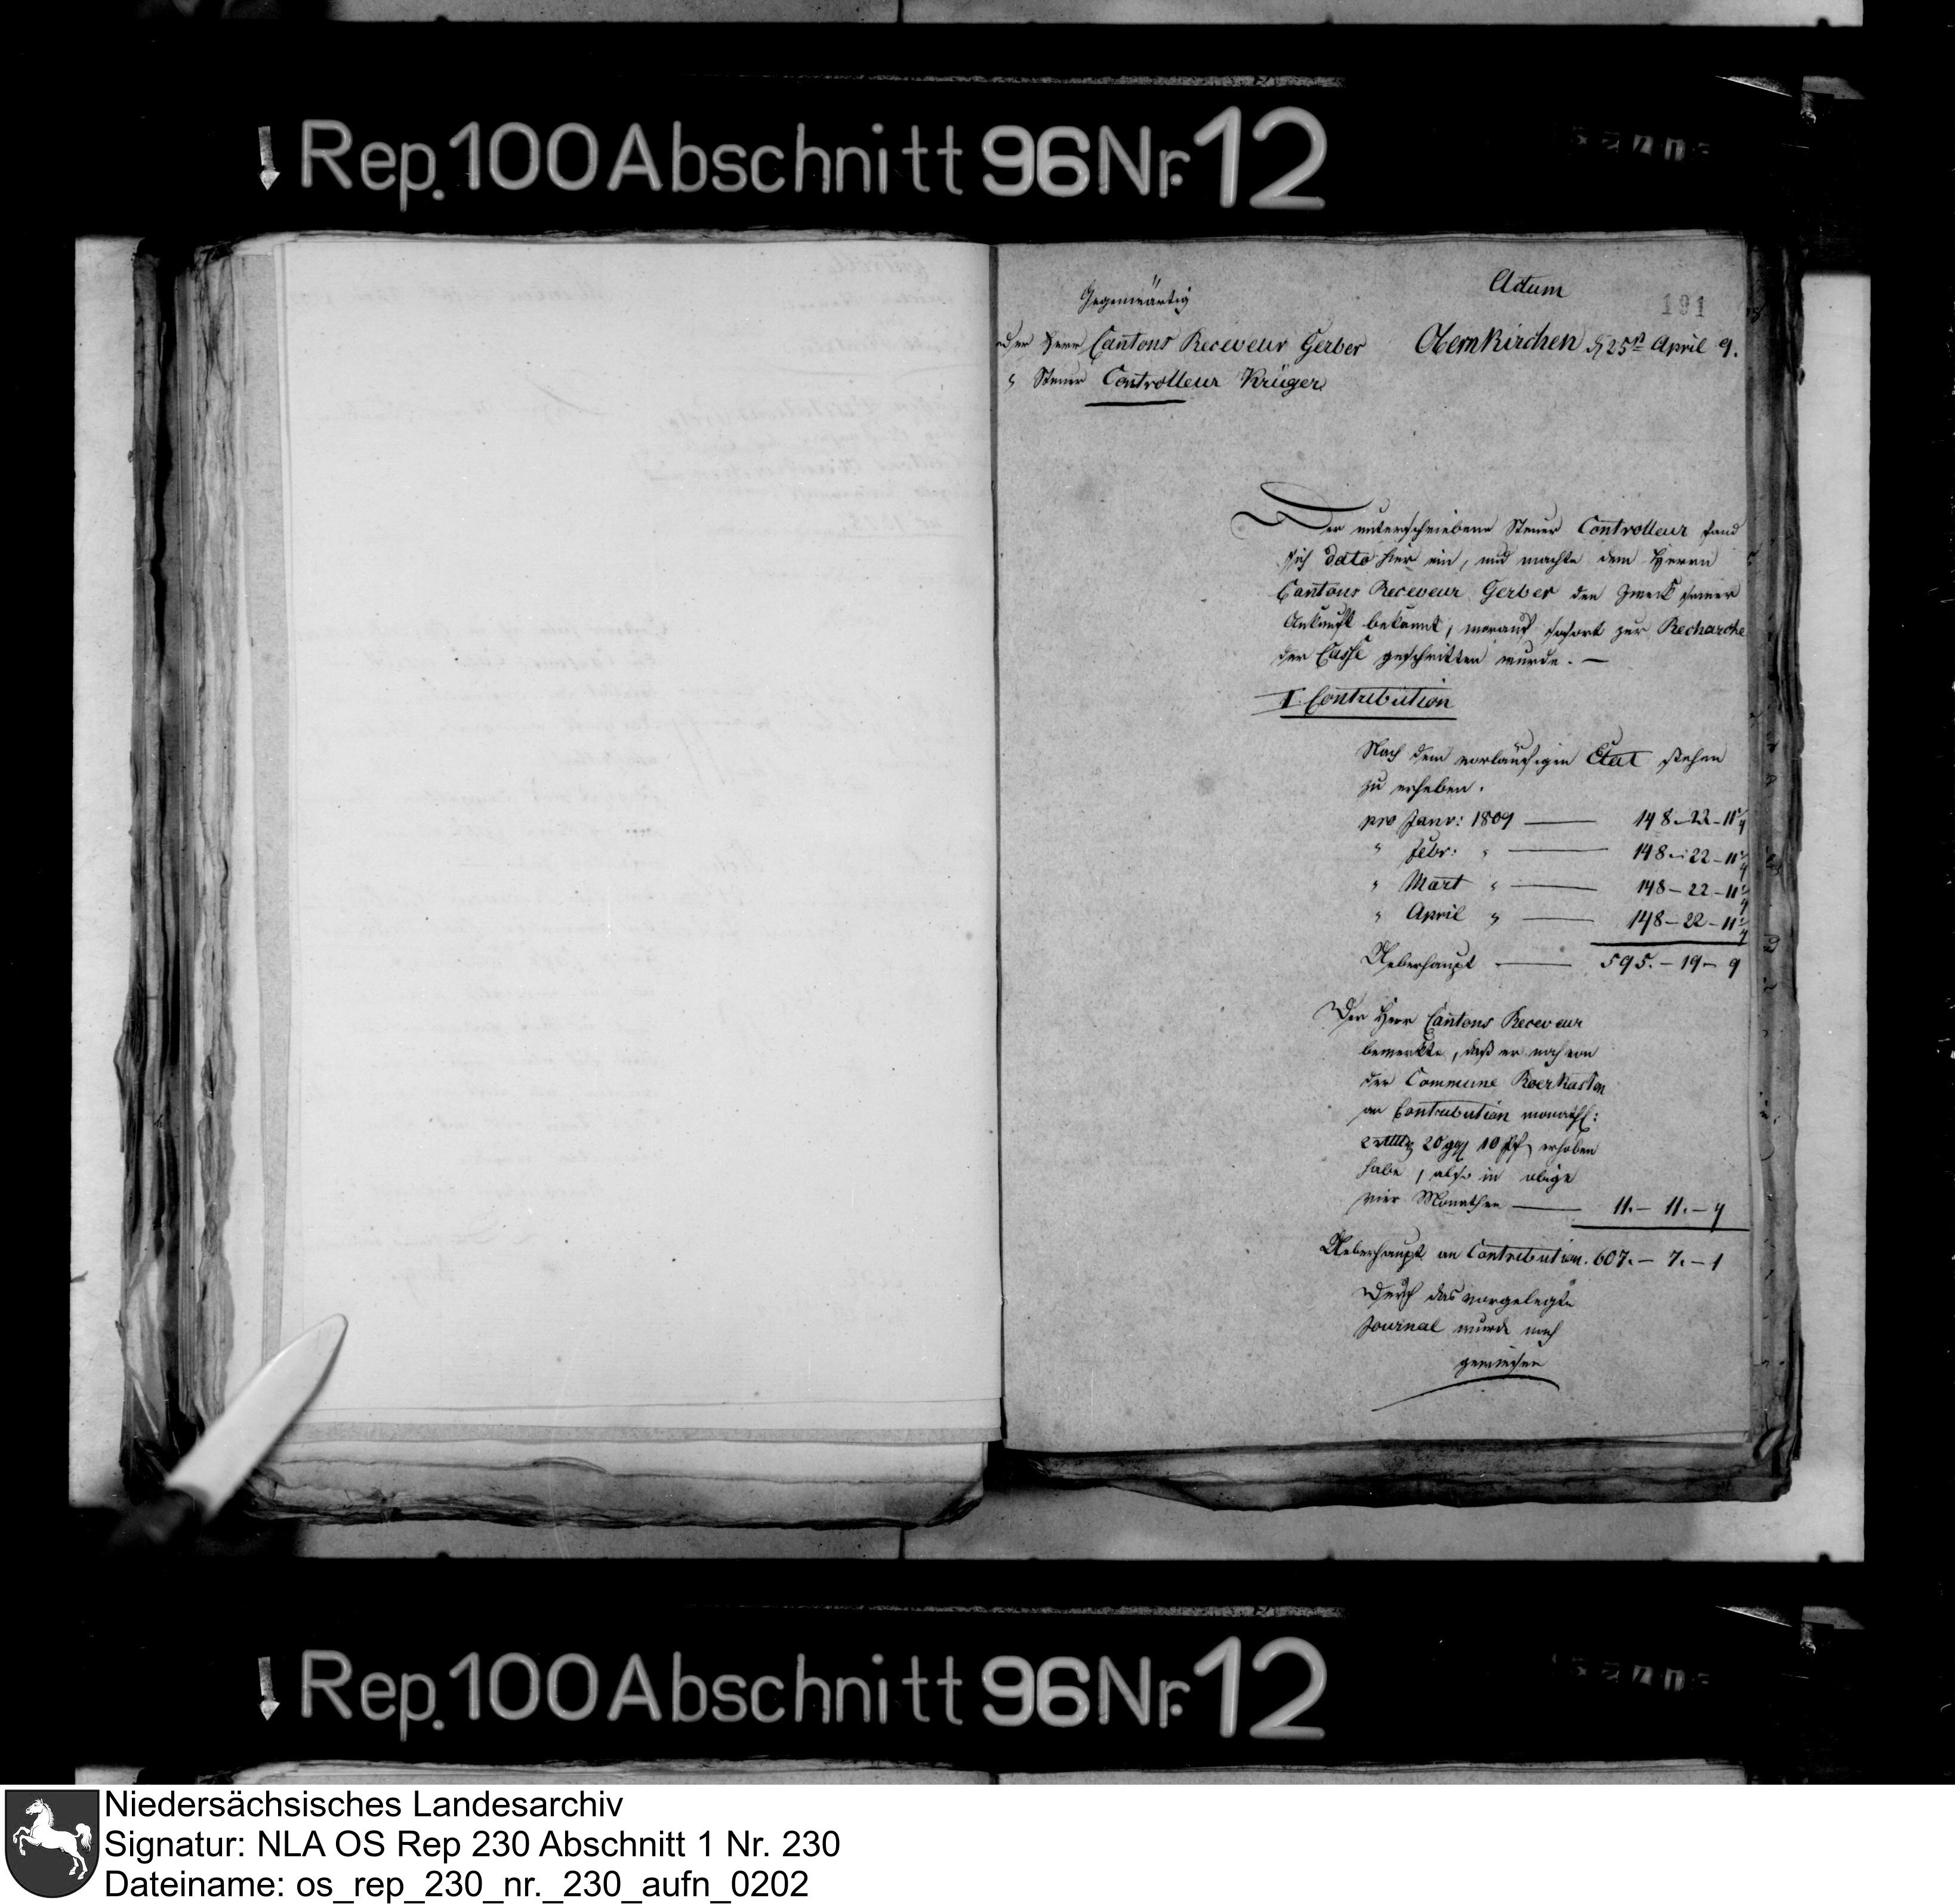 Rep. 100 Abschnitt 96 Nr. 12
Actum
191
Gegenwärtig
Der Herr Cantons Receveur Gerber
Obernkirchen d 25n April 9.
" Steuer Controlleur Krüger
Der unterschriebene Steuer Controlleur fand
sich dato hier ein, und machte dem Herrn
Cantons Receveur Gerber den Zweck seiner
Ankunft bekannt, worauf sofort zur Recherche
der Casse geschritten wurde. —
I Contribution
Nach dem vorläufigen Etat stehen
zu erheben.
pro Janr: 1809 — 148 - 22 - 11 1/4
" Febr: " — 148 - 22 - 11 1/4
" Mart " — 148 - 22 - 11 1/4
" April " — 148 - 22 - 11 1/4
Ueberhaupt — 595. - 19 - 9
Der Herr Cantons Receveur
bemerkte, daß er noch von
der Commune
an Contribution monathl:
2 20 ggr 10 Pf erhoben
habe, also in obige
vier Monathen — 11. - 11. - 4
Ueberhaupt an Contribution. 607. - 7. - 1
Durch das vorgelegte
Journal wurde nach
gewiesen
Rep. 100 Abschnitt 96 Nr. 12
Niedersächsisches Landesarchiv
Signatur: NLA OS Rep 230 Abschnitt 1 Nr. 230
Dateiname: os_rep_230_nr._230_aufn_0202